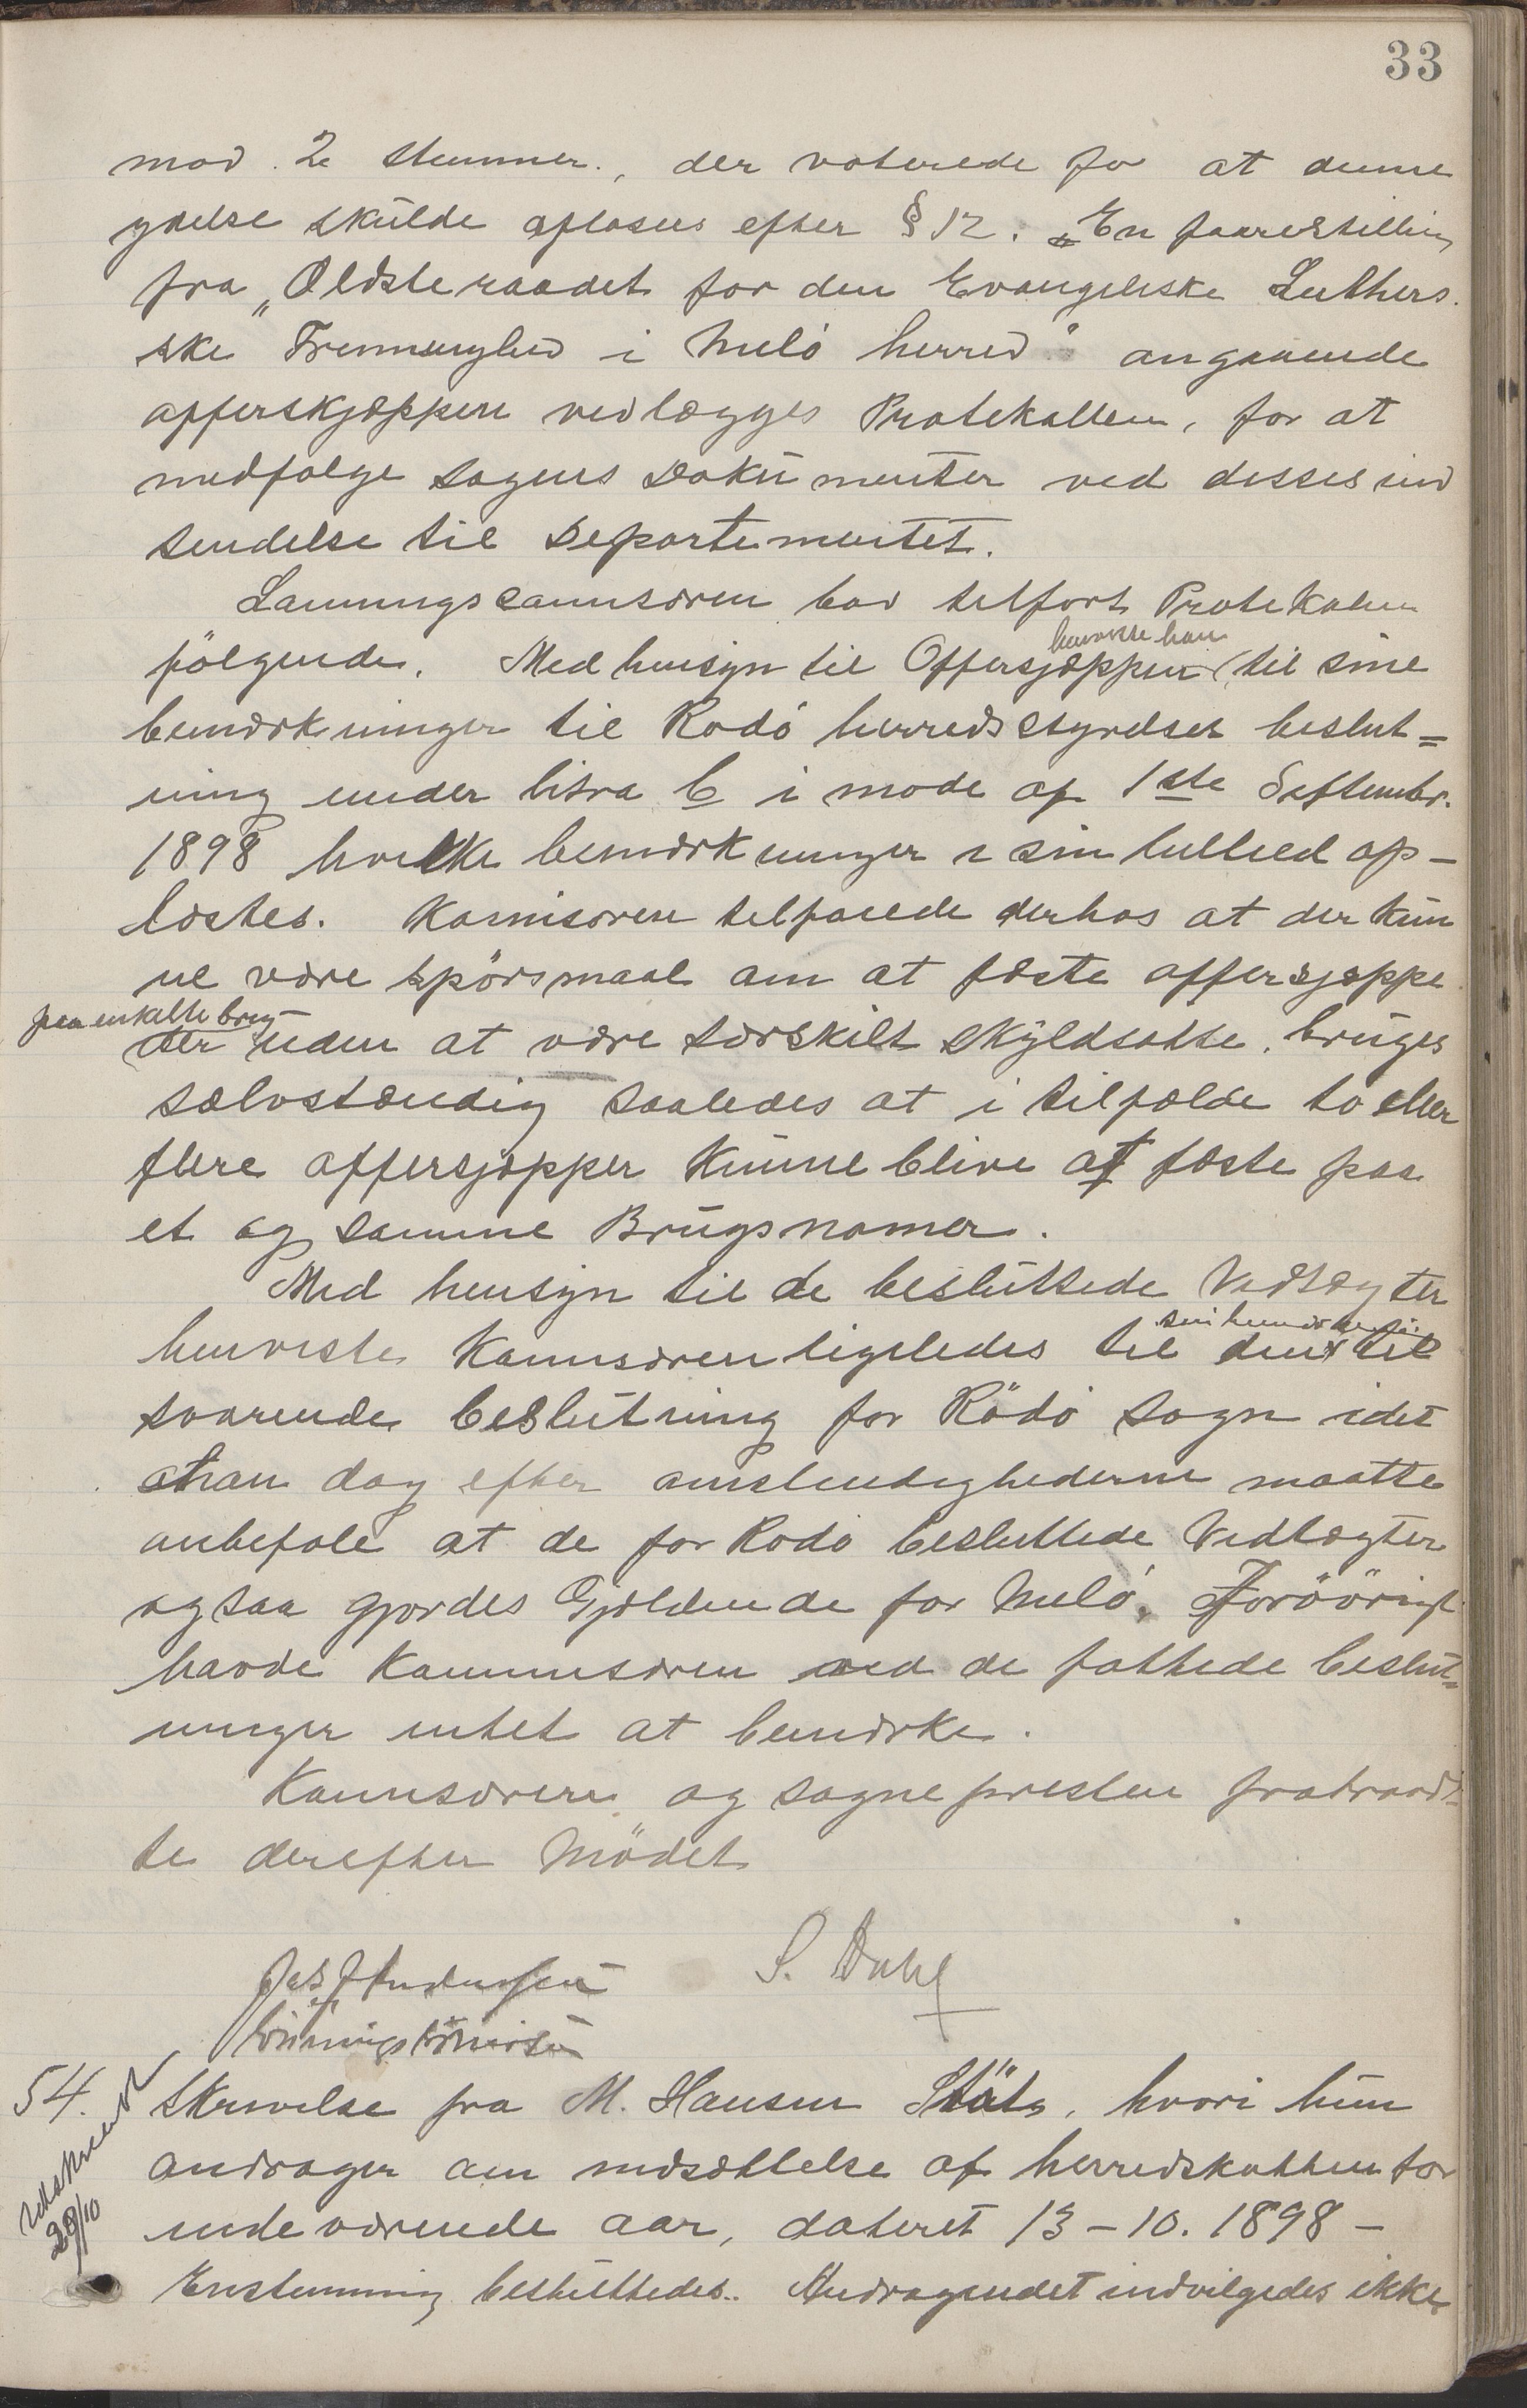 33
mod 2 stemmer, der voterede for at denne
ydelse skulde afløses efter § 12. En forrestilling
fra "Oldsteraadet for den Evangeliske Luthers
ske Frimenyhed i Melö herred" angaaende
offerskjæppen vedlægges Protokollen, for at
medfølge sagens Dokumenter ved disses ind
sendelse til Departementet.
Lønningscommisøren bad tilført Protokolen
følgende. Med hensyn til Offersjæppen henviste han til sine
bemærkninger til Rødö herredsstyrelses beslut=
ning under litra b i møde af 1ste Septembr.
1898 hvilke bemærkninger i sin helhed op-
læstes. Komisøren tilføiede derhos at der kun
ne være spörsmaal om at fæste offersjæppe
paa enkelte brug
der uden at være særskilt skyldsatte, bruges
sælvstændig saaledes at i tilfælde to eller
flere offersjæpper kunne blive at fæste paa
et og samme Brugsnomer.
Med hensyn til de besluttede Vedtægter
henviste Komisøren ligeledes til den til
svarende beslutning for Rödö sogn idet
han dog efter omstendighederne maatte
anbefale at de for Rödö besluttede Vedtægter
ogsaa gjordes Gjældende for Melö. Forövrigt
havde Kommisøren ved de fattede beslut=
ninger intet at bemærke.
Komisøren og sognepresten fratraad=
te derefter Mödet
S. Dahl
Andersen
lönningskomisær
54. Skrivelse fra M. Hansen Stöt, hvori hun
andrager om nedsættelse af herredskatten for
indeværende aar, dateret 13-10. 1898 -
Enstemmig besluttedes. Andragendet indvilgedes ikke
Udskrevet
29/10